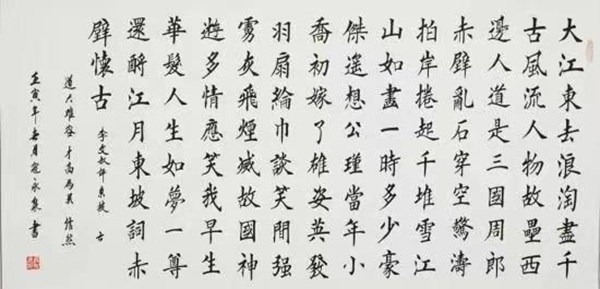 大江東去浪淘盡千
古風流人物故壘西
邊人道是三國周郎
赤壁亂石穿空驚濤
拍岸捲起千堆雪江
山如畫一時多少豪
傑遙想公瑾當年小
喬初嫁了雄姿英發
羽扇綸巾談笑間强
虜灰飛煙滅故國神
遊多情應笑我早生
華髮人生如夢一尊
還酹江月東坡詞赤
壁懷古
李文叔評東坡 士
道大難容 才高爲累 信然
壬寅年春月寇永泉書